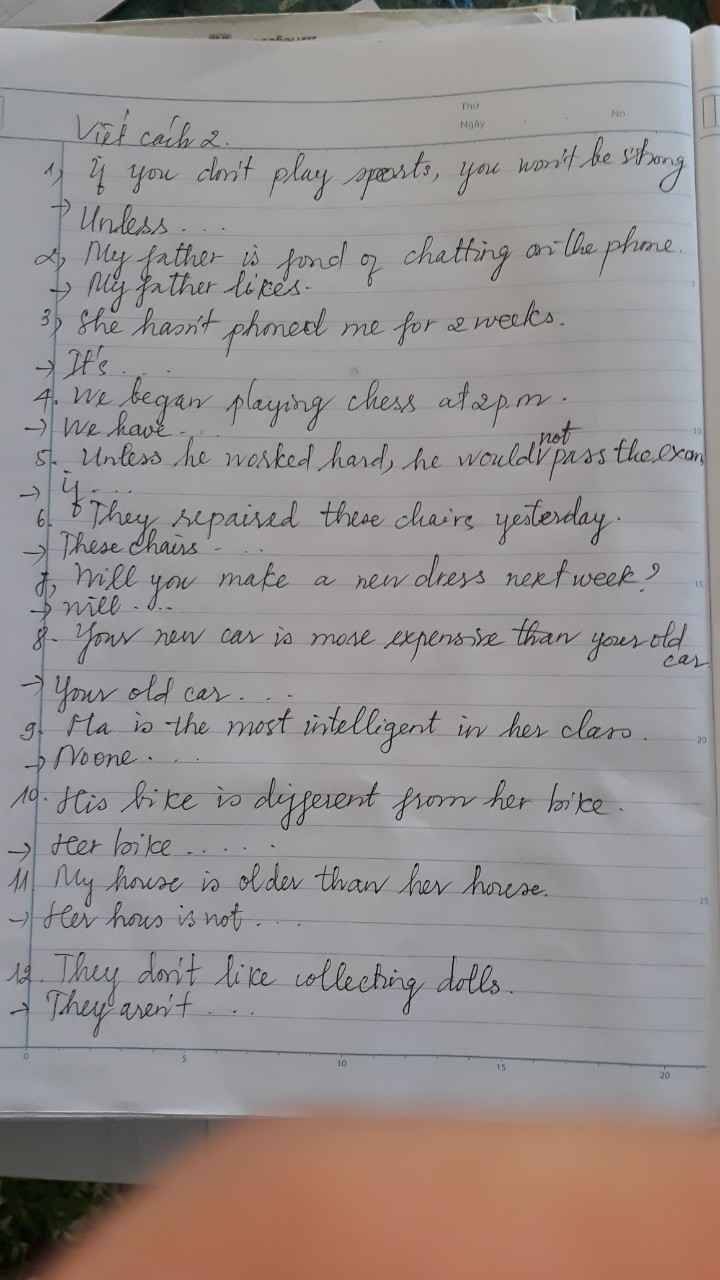 Thứ
Ngày
No
Viết cách 2.
1) if you don't play sports, you won't be strong
→ Unless ...
2) My father is fond of chatting on the phone.
→ My father likes.
3) She hasn't phoned me for 2 weeks.
→ It's ....
4. We began playing chess at 2 p.m.
→ We have ...
5. Unless he worked hard, he would not pass the exam
→ if ....
6. They repaired these chairs yesterday.
→ These chairs ....
7, Will you make a new dress next week?
→ will ....
8. Your new car is more expensive than your old car
→ Your old car ....
9. Ha is the most intelligent in her class.
→ No one ....
10. His bike is different from her bike.
→ Her bike .....
11 My house is older than her house.
→ Her hous is not ....
12. They don't like collecting dolls.
→ They aren't ...
0 5 10 15 20